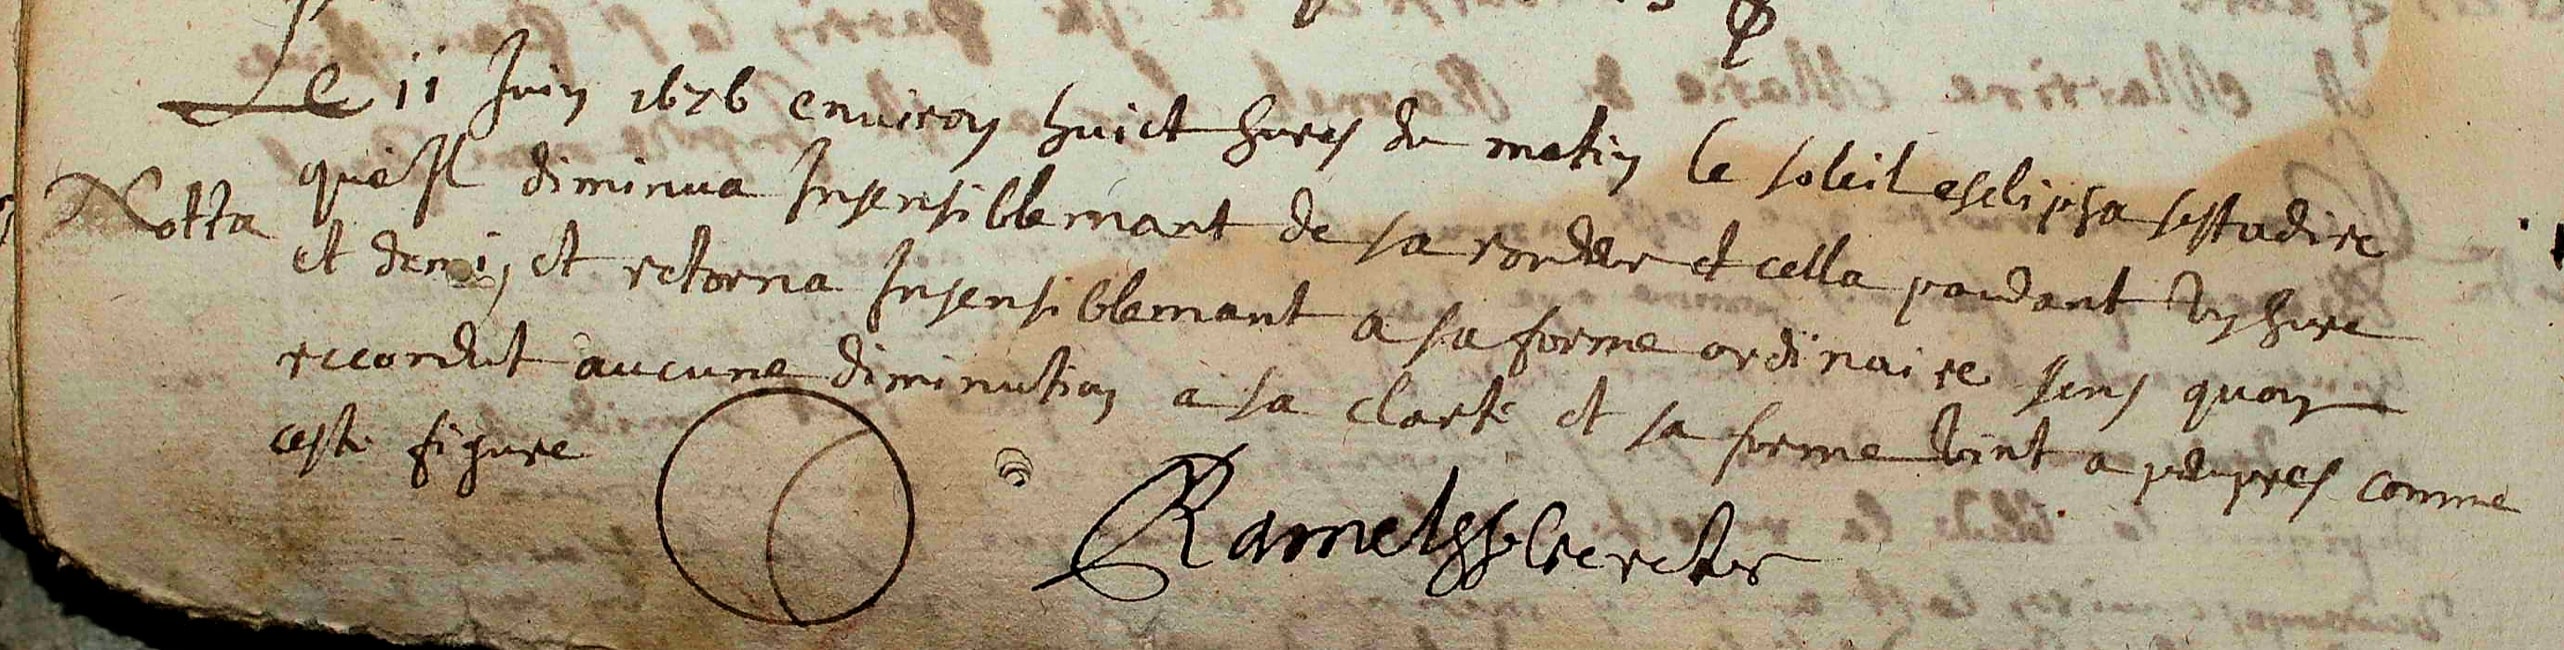 Le 11 Juin 1676 environ huict hures du matin le soleil esclipsa sestadire
Notta
que Il diminua Insensiblemant de sa rondur et cella pandant un hure
et demi, et retorna Insensiblemant a sa forme ordinaire sens quon
recondut aucune diminution a sa clarté et sa forme vint a peupres comme
ceste figure
Ramel